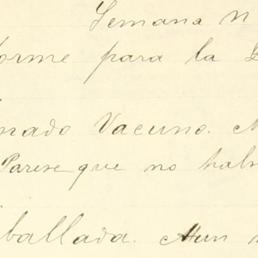 Semana n
orme para la
nado Vacuno.
Parese que no hab
ballada. Aun